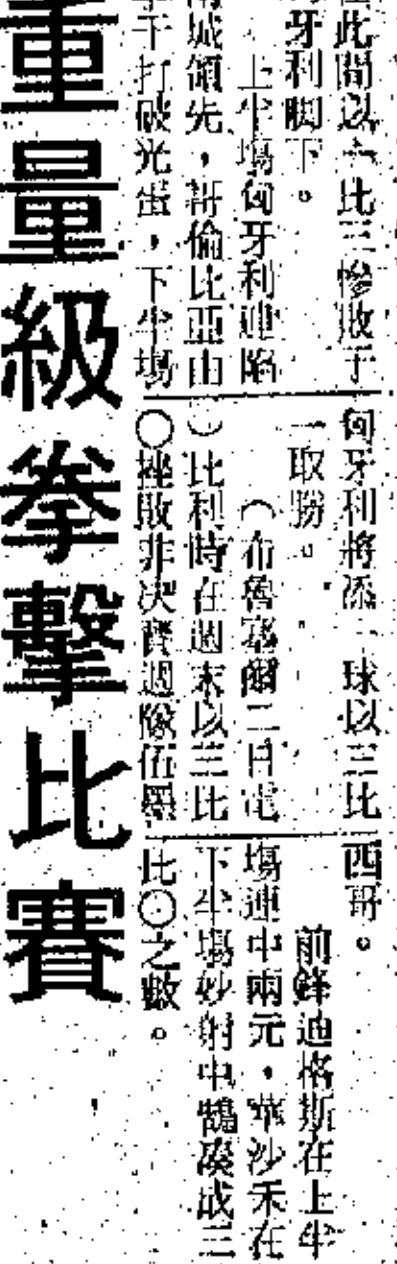 在此間以六比三慘敗于
匈牙利脚下。
上半塲匈牙利連陷
兩城領先,哥倫比亞由
干打破光蛋,下半塲
匈牙利將添一球以三比
一取勝。
(布魯塞爾二日電
)比利時在週末以三比
○挫敗非決賽週隊伍墨
西哥。
前鋒迪格斯在上半
塲連中兩元,華沙禾在
下半塲妙射中鵠湊成三
比○之數。
重量級拳擊比賽